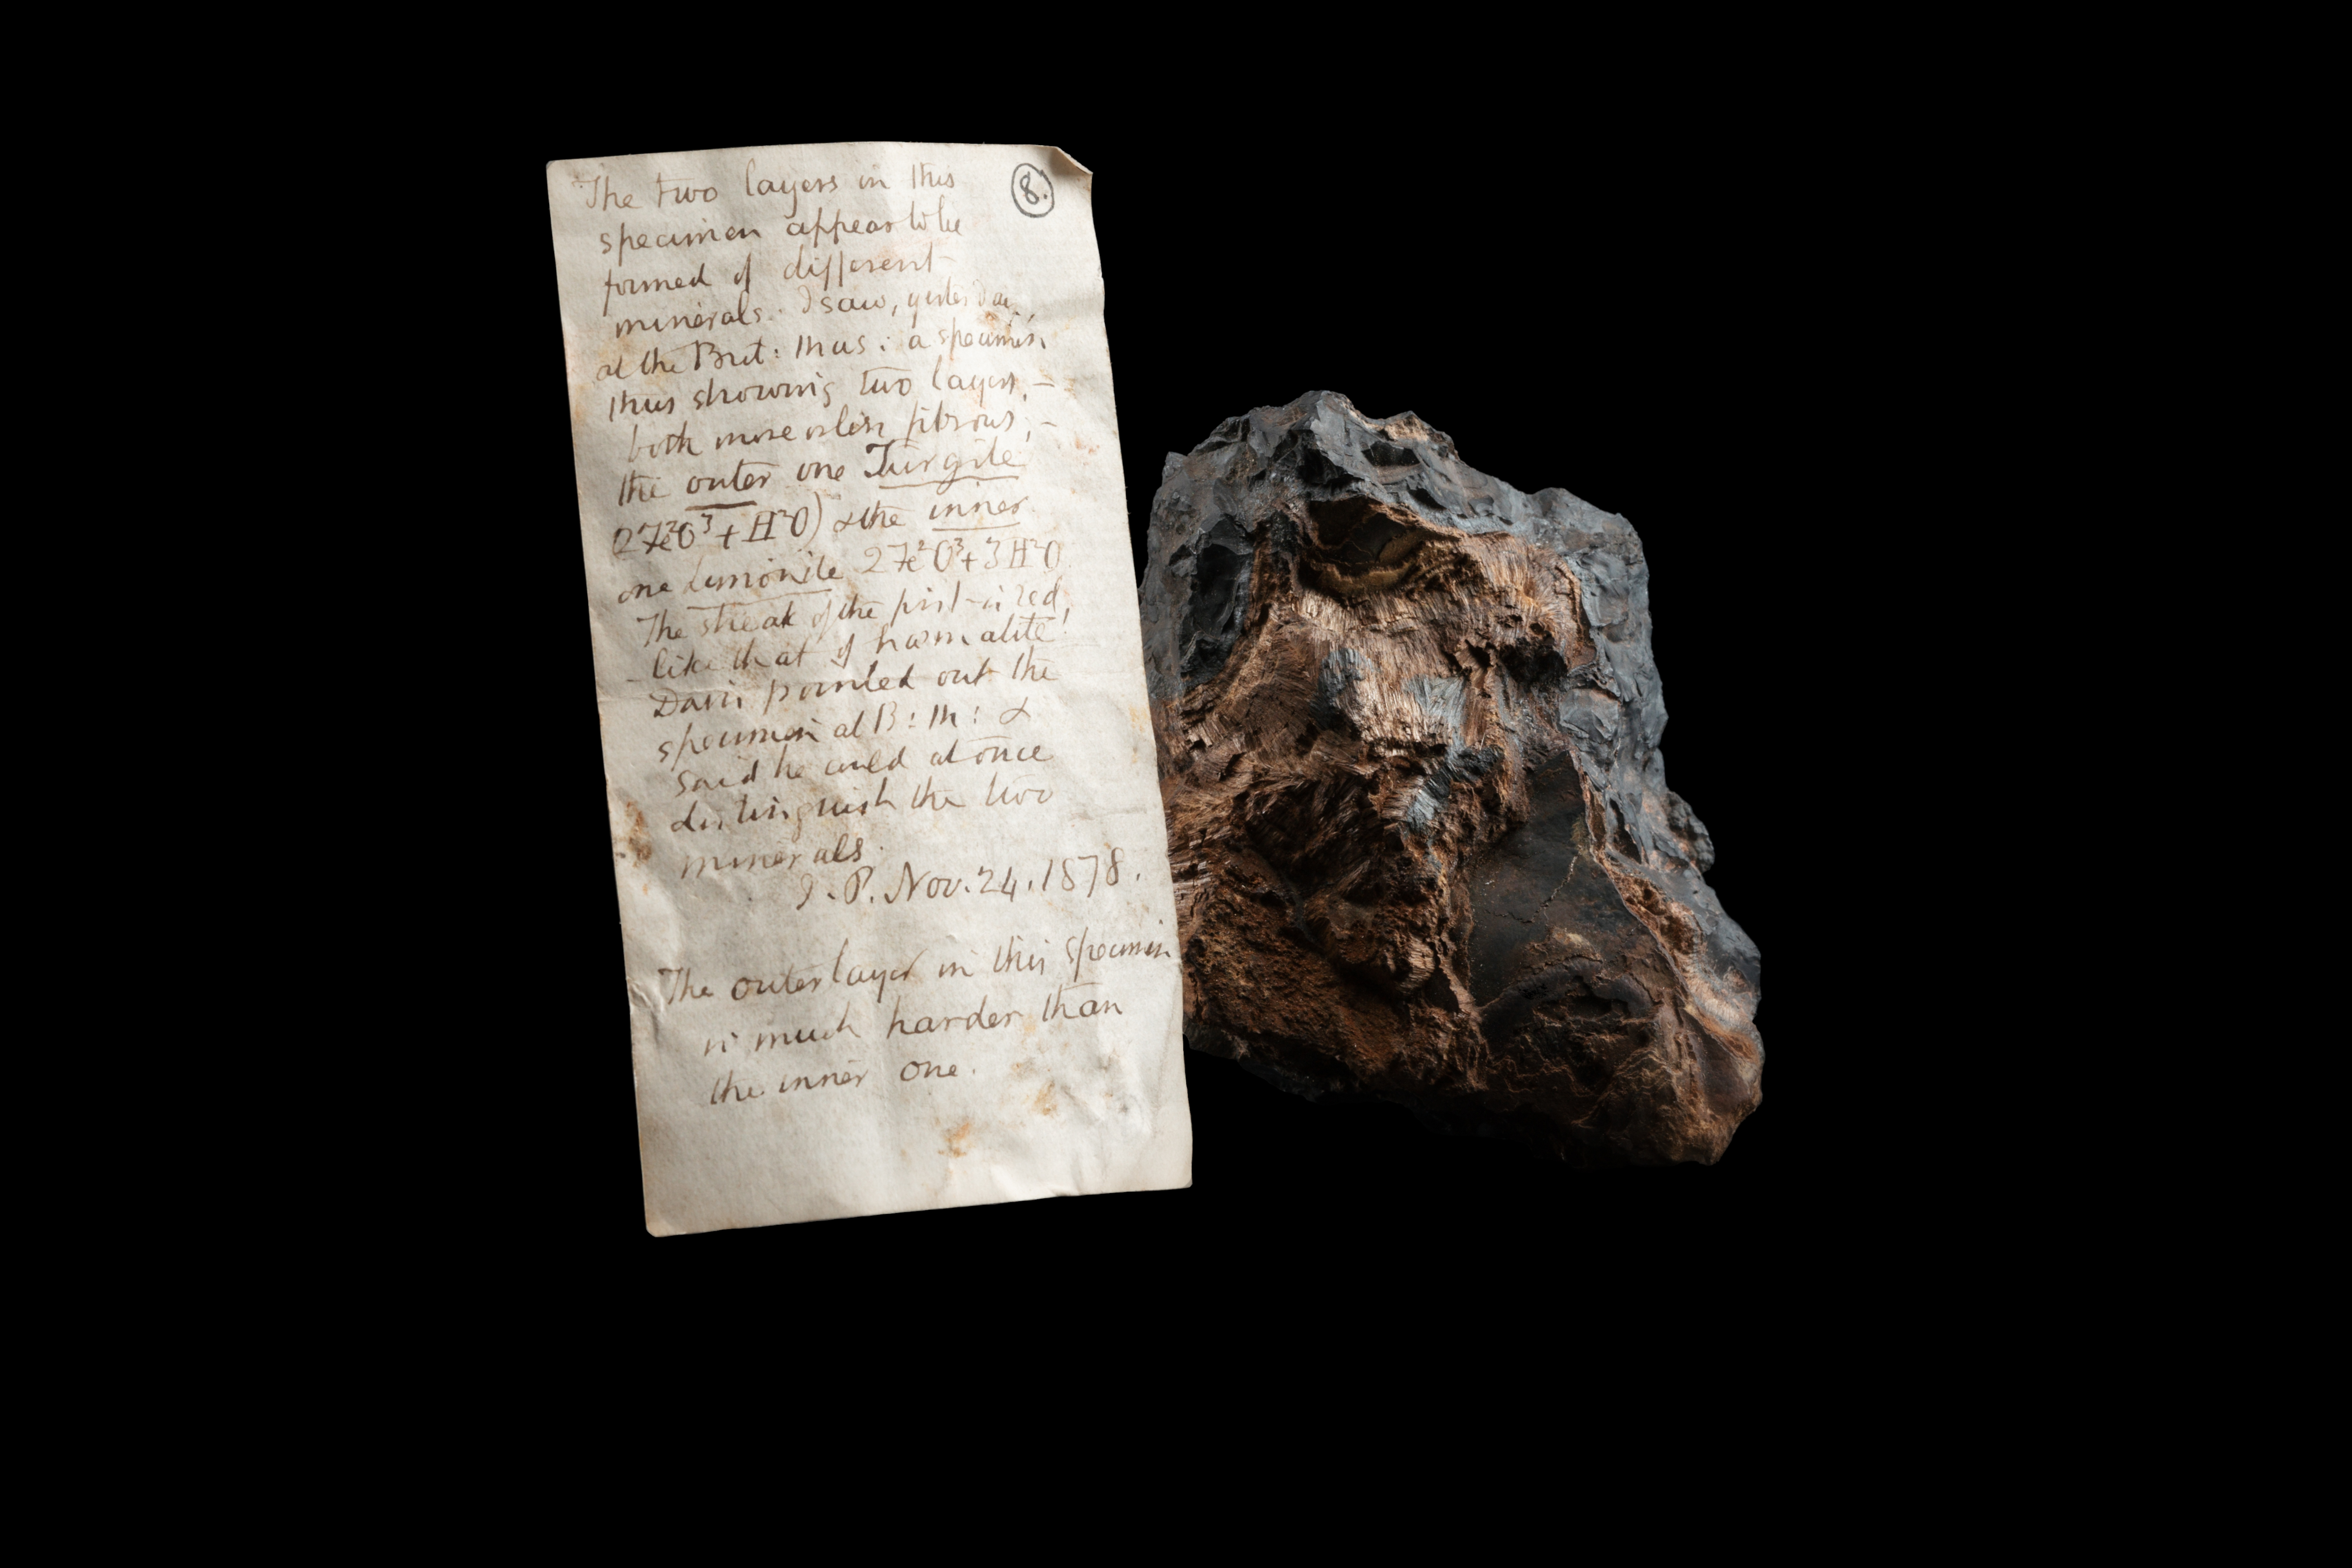 The two layers in this
8.
specimen appear to be
formed of different
minerals. I saw, yesterday,
at the Brit: Mus: a specimen
thus showing two layers, –
both more or less fibrous, –
the outer one Turgite
2Fe²O³ + H²O) & the inner
one Limonite 2Fe²O³ + 3H²O
The streak of the first is red,
like that of hæmatite!
Davis pointed out the
specimen at B: M: &
said he could at once
distinguish the two
minerals.
J. P. Nov. 24. 1878.
The outer layer in this specimen
is much harder than
the inner one.